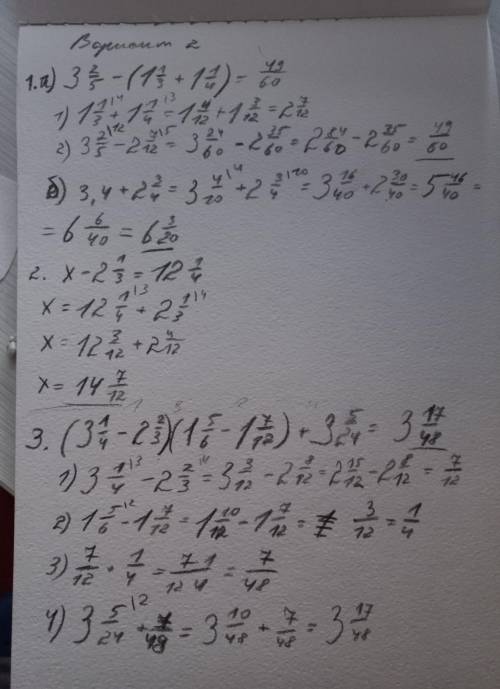 Вариант 2
1. а) 3 2/5 - (1 1/3 + 1 1/4) = 49/60
1) 1 1/3 \4 + 1 1/4 \3 = 1 4/12 + 1 3/12 = 2 7/12
2) 3 2/5 \12 - 2 7/12 \5 = 3 24/60 - 2 35/60 = 2 84/60 - 2 35/60 = 49/60
б) 3,4 + 2 3/4 = 3 4/10 \4 + 2 3/4 \10 = 3 16/40 + 2 30/40 = 5 46/40 =
= 6 6/40 = 6 3/20
2. x - 2 1/3 = 12 1/4
x = 12 1/4 \3 + 2 1/3 \4
x = 12 3/12 + 2 4/12
x = 14 7/12
3. (3 1/4 - 2 2/3)(1 5/6 - 1 7/12) + 3 5/24 = 3 17/48
1) 3 1/4 \3 - 2 2/3 \4 = 3 3/12 - 2 8/12 = 2 15/12 - 2 8/12 = 7/12
2) 1 5/6 \2 - 1 7/12 = 1 10/12 - 1 7/12 = 3/12 = 1/4
3) 7/12 · 1/4 = 7·1/12·4 = 7/48
4) 3 5/24 \2 + 7/48 = 3 10/48 + 7/48 = 3 17/48